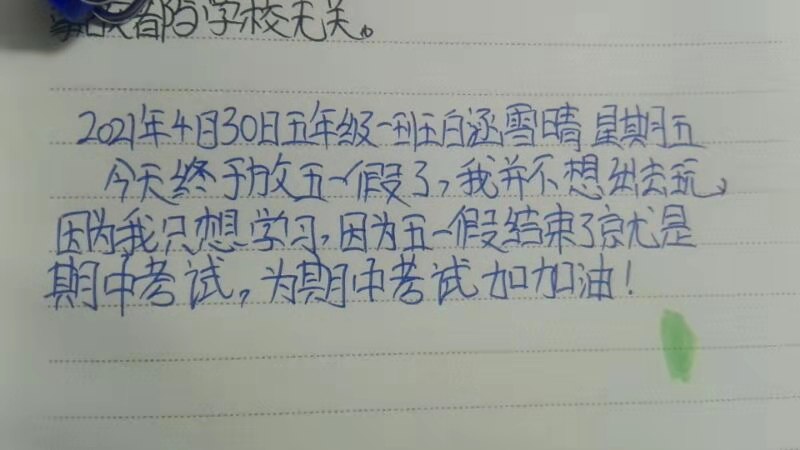 都陷学校无关。
2021年4月30日五年级一班白涵雪晴 星期五
今天终于放五一假了,我并不想出去玩,
因为我只想学习,因为五一假结束了就是
期中考试,为期中考试加加油!